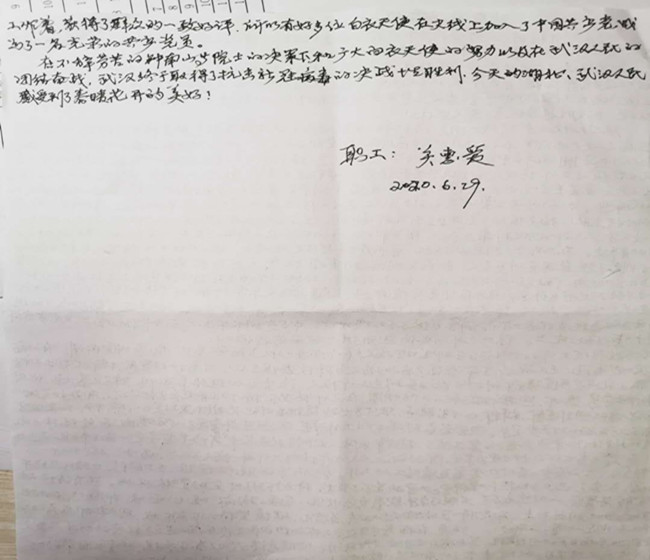 工作着,获得了群众的一致好评,所以有好多位白衣天使在火线上加入了中国共产党,成
为了一名光荣的共产党员。
在不辞劳苦的钟南山等院士的决策下和广大白衣天使的努力以及在武汉人民的
团结奋战,武汉终于取得了抗击新冠病毒的决战性胜利,今天的湖北、武汉人民
感受到了春暖花开的美好!
职工: 关惠爱
2020.6.29.